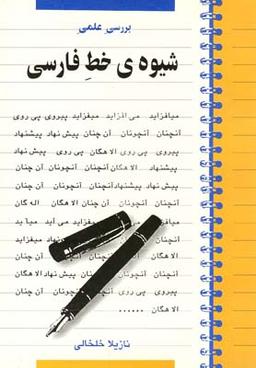 بررسی علمی
شیوه ی خطِ فارسی
میافزاید می افزاید میفزاید پیروی پی روی
آنچنان آنچونان آن چنان پیش نهاد پیشنهاد
پیروی پی روی الاهگان پی روی پیش نهاد
پیشنهاد الاهگان آنچنان آنچونان آن چنان
پیش نهاد پیشنهاد آنچنان آنچونان آن چنان
آنچنان آنچونان آن چنان الاهگان اله گان
میافزاید میفزاید می آید
آنچنان میفزاید
الاهگان الاهگان
آنچنان آنچونان پیش نهاد الاهگان
پیروی پی روی آنچونان آن چنان
الاهگان ......
نازیلا خلخالی